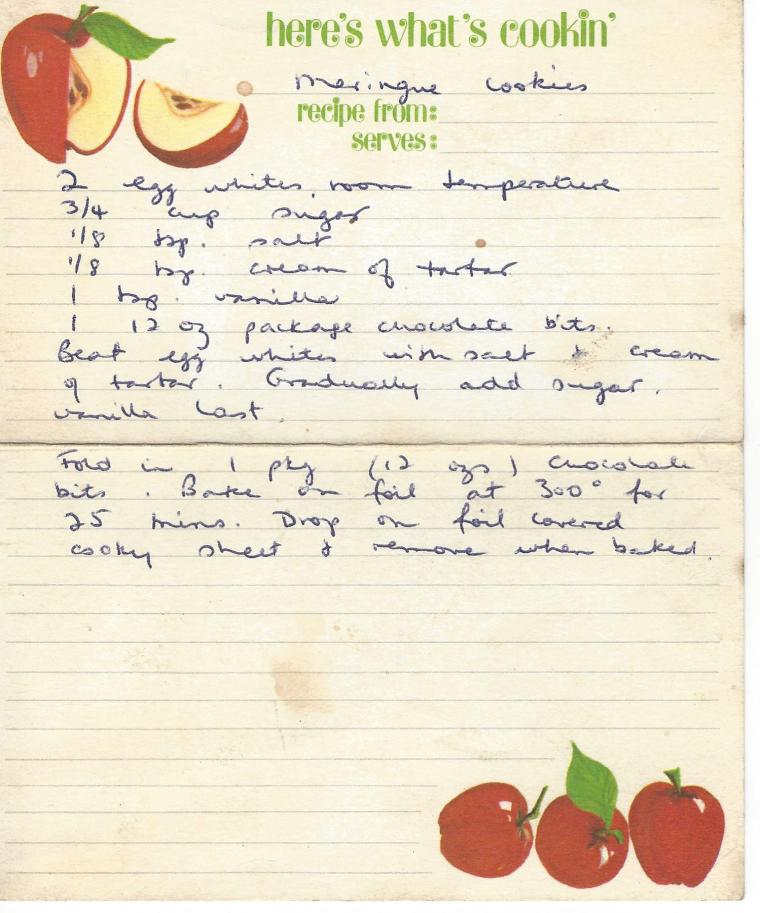 here's what's cookin'
Meringue Cookies
recipe from:
serves:
2 egg whites, room temperature
3/4 cup sugar
1/8 tsp. salt
1/8 tsp. cream of tartar
1 tsp. vanilla
1 12 oz package chocolate bits.
Beat egg whites with salt & cream
of tartar. Gradually add sugar,
vanilla last.
Fold in 1 pkg (12 ozs) chocolate
bits. Bake on foil at 300° for
25 mins. Drop on foil covered
cooky sheet & remove when baked.